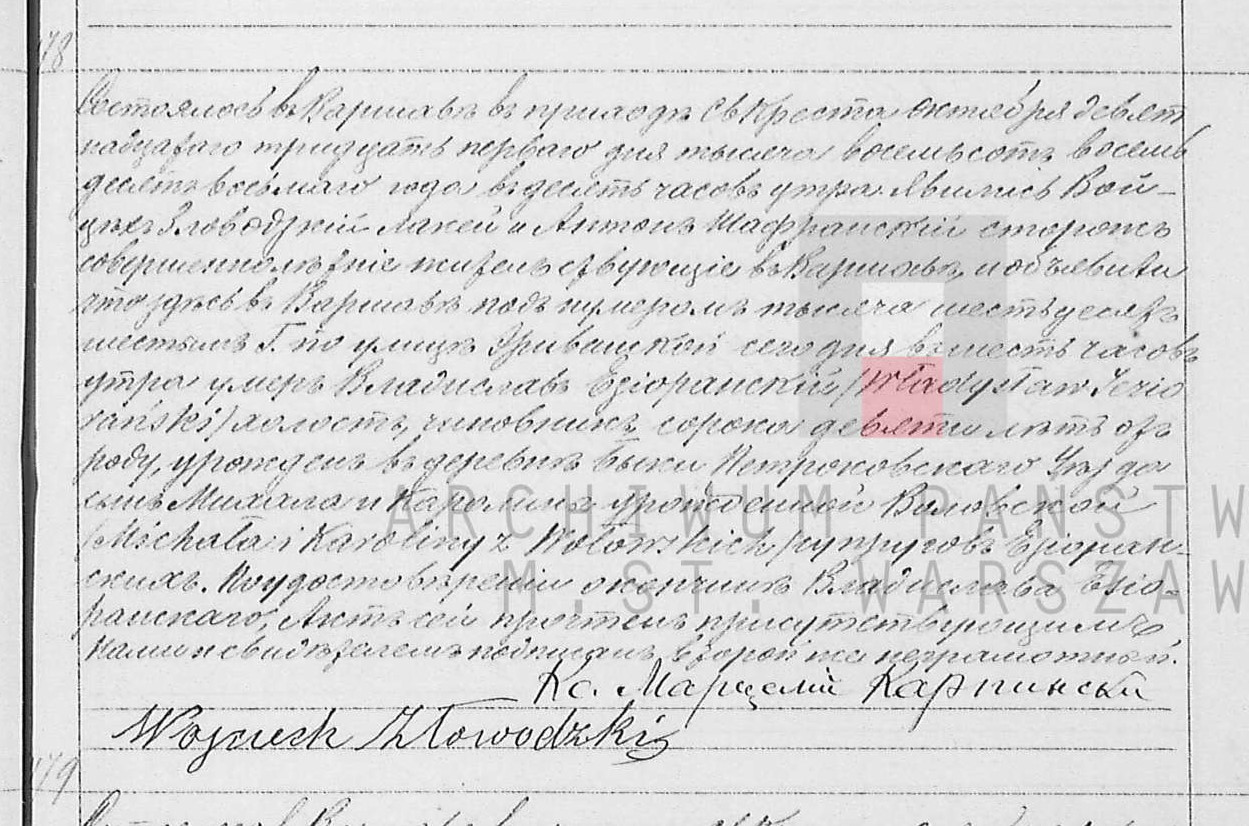 78
Состоялось въ Варшавѣ въ приходѣ Св Креста Октября девят
надцатаго тридцать перваго дня тысяча восемьсотъ восемь
десятъ восьмаго года въ десять часовъ утра. Явились Вой-
цѣхъ Зловодзкій лакей и Антонъ Шафранскій сторожъ
совершеннолѣтніе жительствующіе въ Варшавѣ, и объявили
что здѣсь въ Варшавѣ подъ нумеромъ тысяча шестьдесятъ
шестымъ Г. по улицѣ сего дня въ шесть часовъ
утра умеръ Владиславъ Езіоранскій /Władysław Jezio
rański/ холостъ, чиновникъ, сорока девяти лѣтъ отъ
роду, урожденъ въ деревнѣ Быки Петроковскаго Уѣзда
сынъ Михала и Каролины урожденной Воловской
/Michała i Karoliny z Wołowskich/ супруговъ Езіоран-
скихъ. По удостовѣреніи о кончинѣ Владислава Езіо-
ранскаго, Актъ сей прочтенъ присутствующимъ
Нами и свидѣтелемъ подписанъ, второй же неграмотный.
Кс. Марцелій Карпинскій
Wojciech Złowodzki
79
ARCHIWUM PAŃSTW
M. ST. WARSZAW